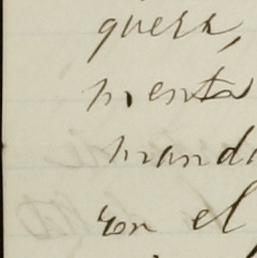 guera,
menta
mand
con el